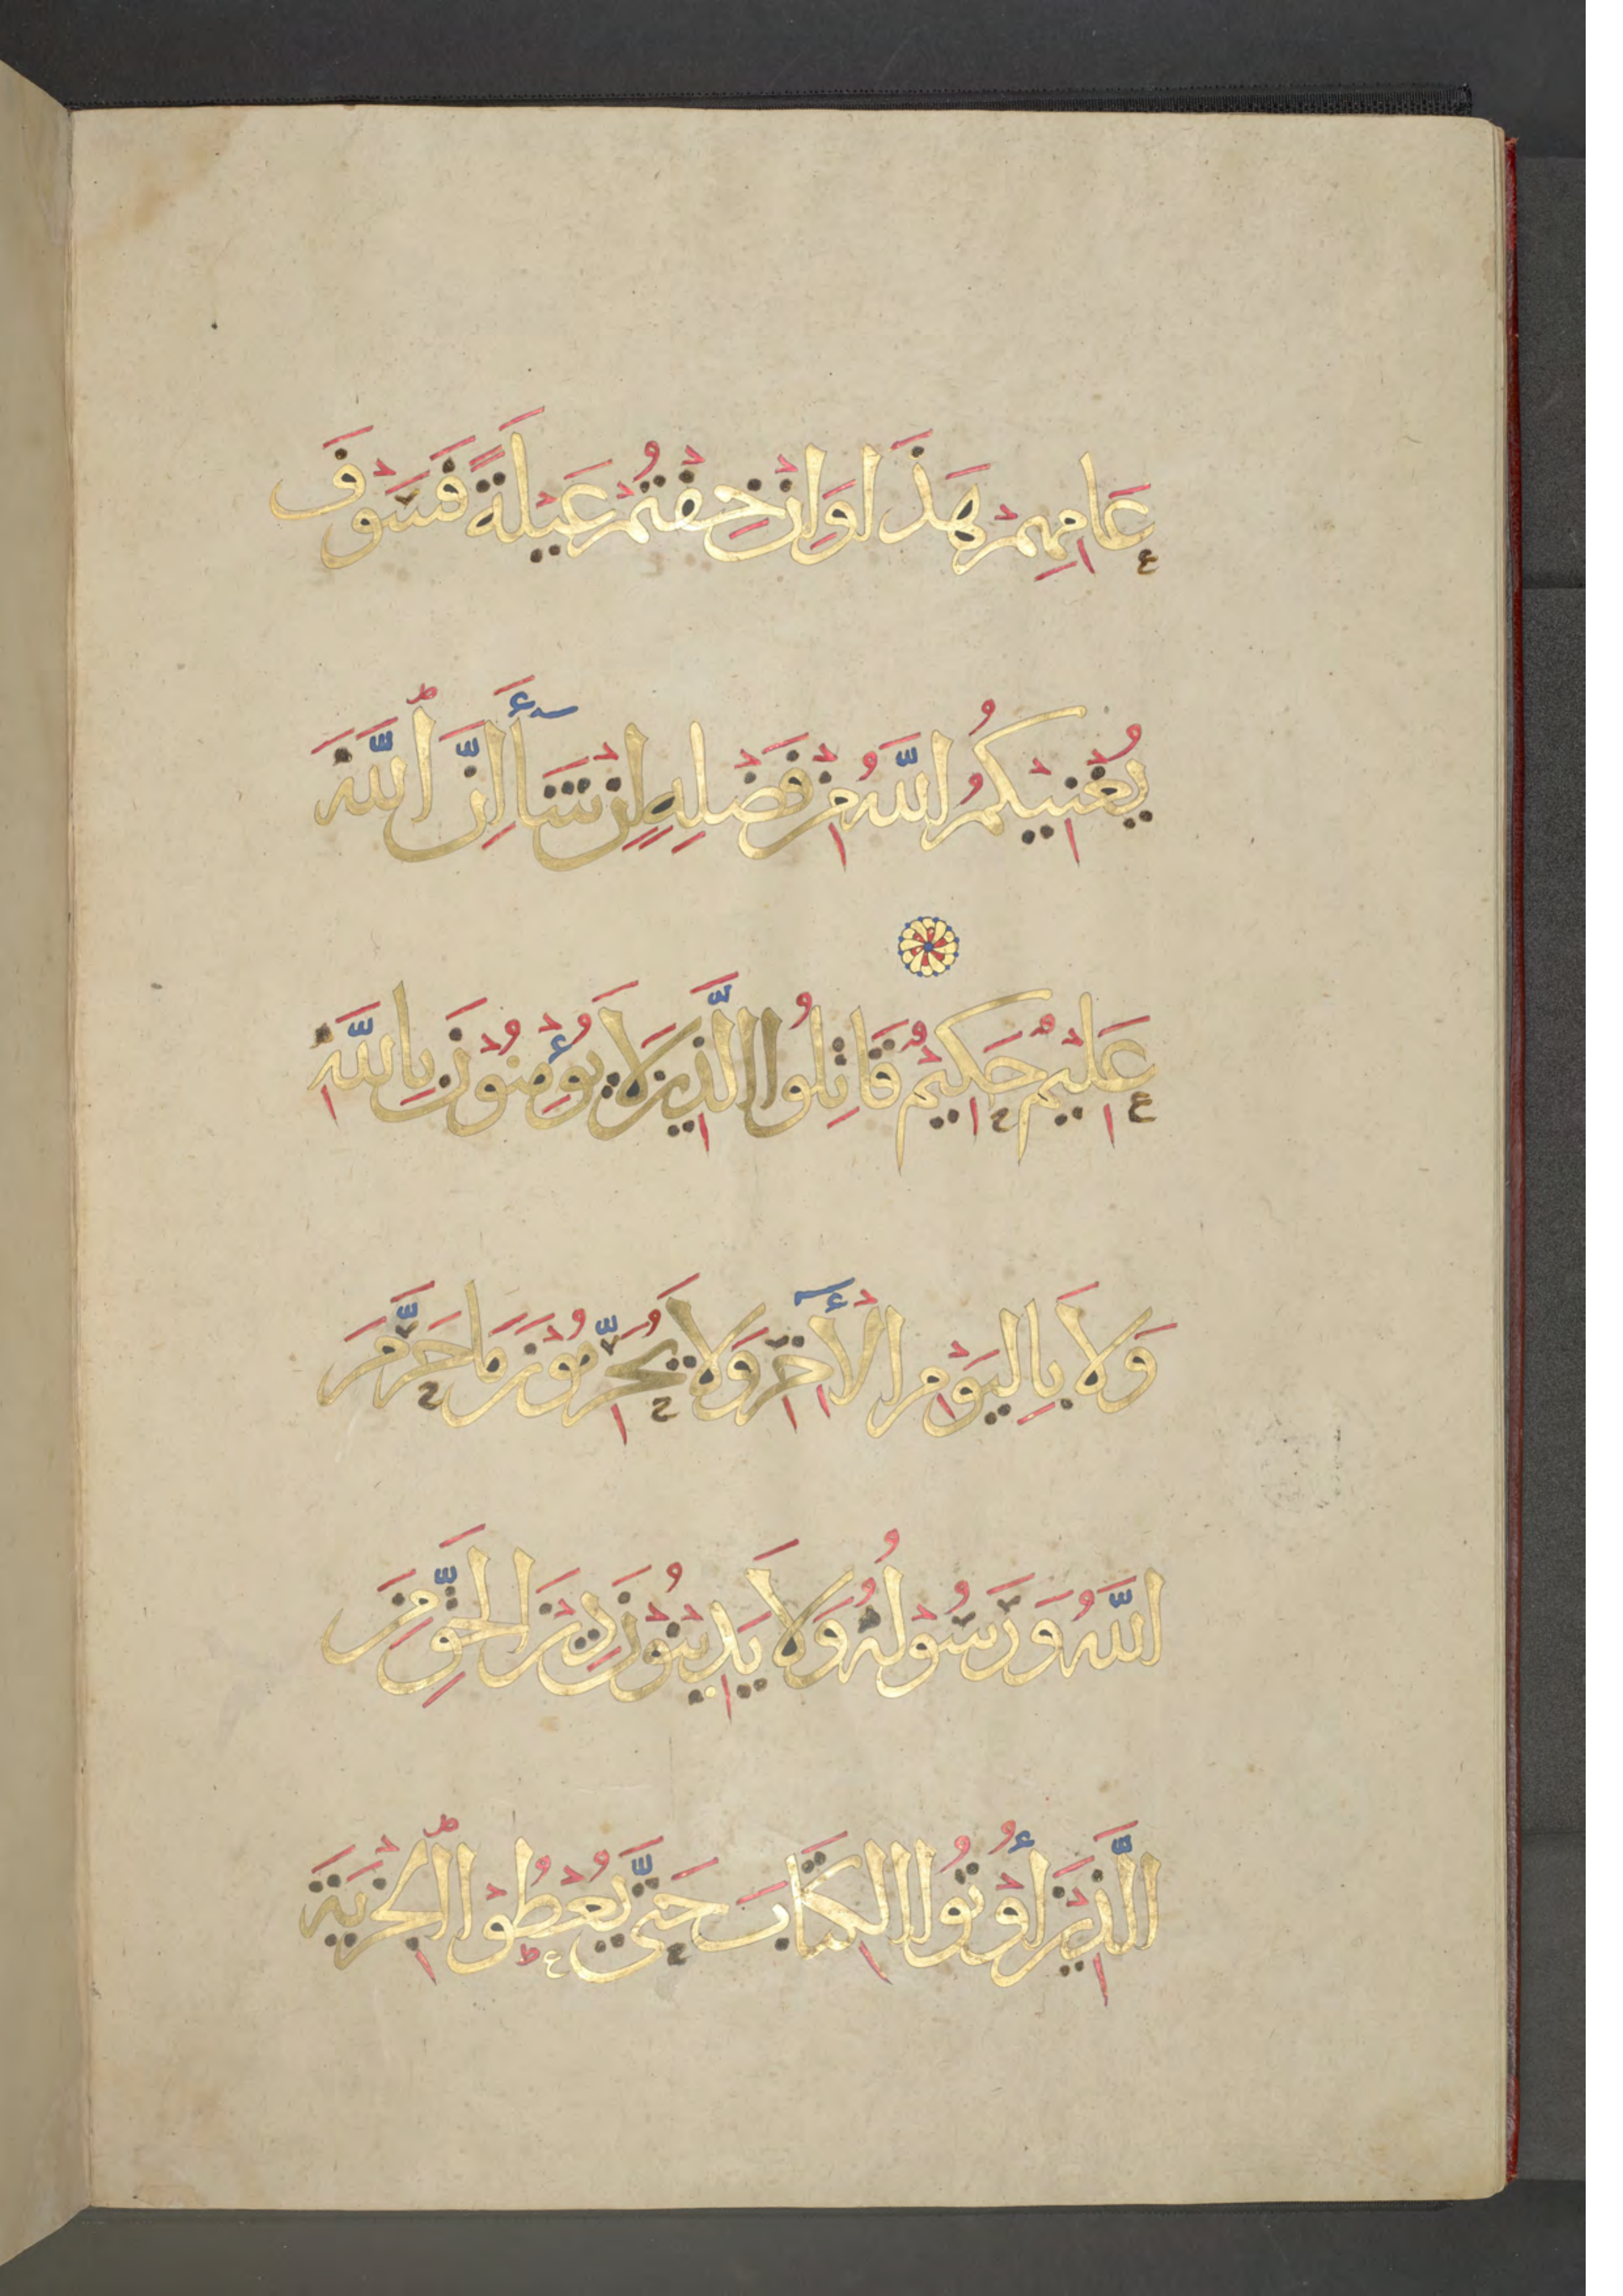 عَامِهِمْ هَذَا وَاِنْ خِفْتُمْ عَيْلَةً فَسَوْفَ
يُغْنِيكُمُ اللّٰهُ مِنْ فَضْلِهِ اِنْ شَآءَ اِنَّ اللّٰهَ
عَلِيمٌ حَكِيمٌ قَاتِلُوا الَّذِينَ لَا يُؤْمِنُونَ بِاللّٰهِ
وَلَا بِالْيَوْمِ الْأٓخِرِ وَلَا يُحَرِّمُونَ مَا حَرَّمَ
اللّٰهُ وَرَسُولُهُ وَلَا يَدِينُونَ دِينَ الْحَقِّ مِنَ
الَّذِينَ أُوْتُوا الْكِتَابَ حَتَّى يُعْطُوْا الْجِزْيَةَ